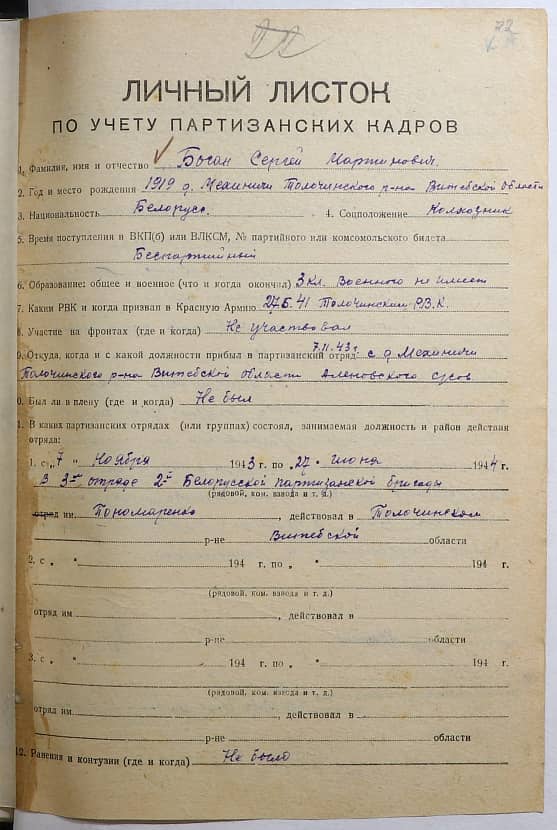 22
ЛИЧНЫЙ ЛИСТОК
ПО УЧЕТУ ПАРТИЗАНСКИХ КАДРОВ
1. Фамилия, имя и отчество Босан Сергей Мартинович.
2. Год и место рождения 1919 д. Межиничи Толочинского р-на Витебской области
3. Национальность Белорусс. 4. Соцположение Колхозник
5. Время поступления в ВКП(б) или ВЛКСМ, № партийного или комсомольского билета
Беспартийный
6. Образование: общее и военное (что и когда окончил) 3 кл. Военного не имеет
7. Каким РВК и когда призван в Красную Армию 27.6.41 Толочинским Р.В.К.
8. Участие на фронтах (где и когда) Не участвовал
7.11.43 г.
9. Откуда, когда и с какой должности прибыл в партизанский отряд: с д. Межиничи
Толочинского р-на Витебской области
0. Был ли в плену (где и когда) Не был
1. В каких партизанских отрядах (или группах) состоял, занимаемая должность и район действия
отряда:
1. с "7" Ноября 1943 г. по "27" Июня 1944 г.
В 3-м отряде 2-й Белорусской партизанской бригады
(рядовой, ком. взвода и т. д.)
отряд им. Пономаренко, действовал в Толочинском
р-не Витебской области
2. с " " 194 г. по " " 194 г.
(рядовой, ком. взвода и т. д.)
отряд им , действовал в
р-не области
3. с " " 194 г. по " " 194 г.
(рядовой, ком. взвода и т. д.)
отряд им. , действовал в
р-не области
12. Ранения и контузии (где и когда) Не было